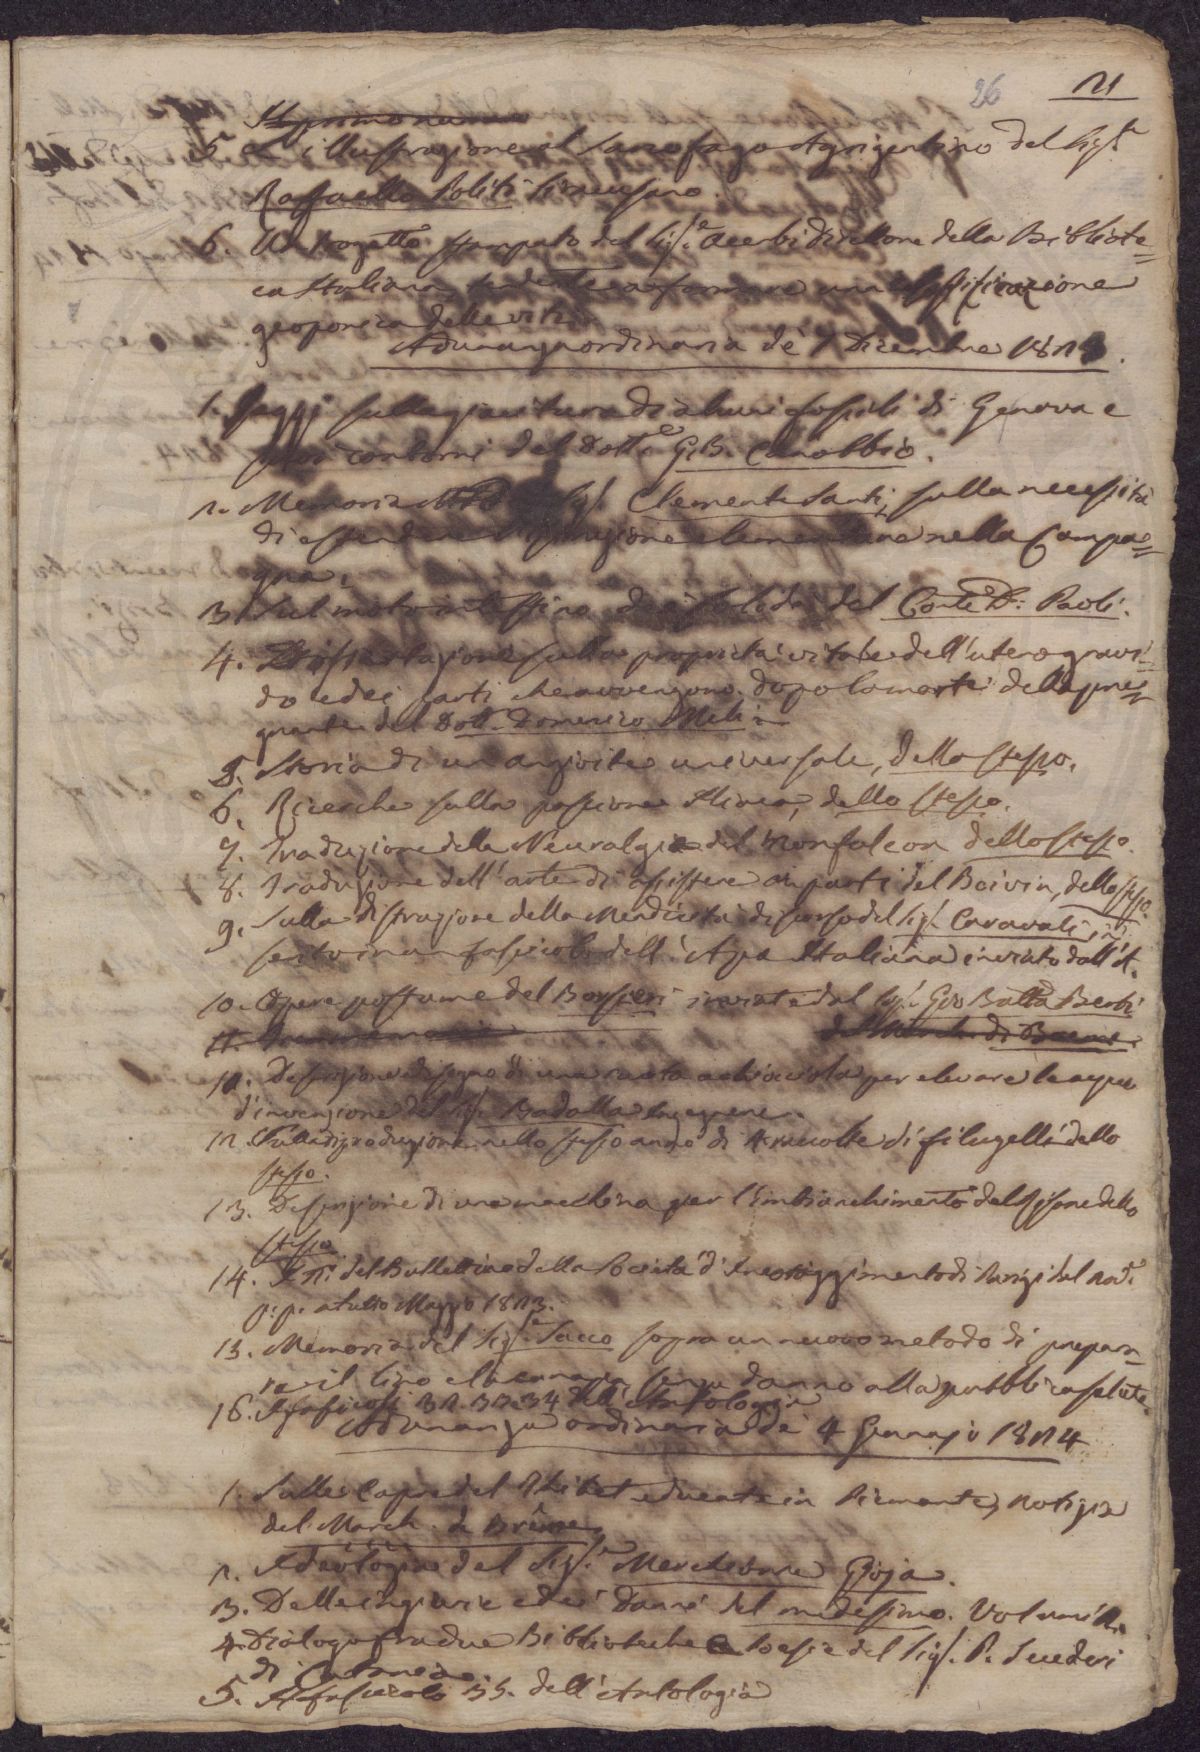 26 21
5. L'illustrazione al Sarcofago Agrigentino del Sigr.
Raffaello Politi Siracusano
6. Un Progetto stampato del Sigre. Acerbi Direttore della Bibliote=
ca Italiana, tendente a formare una classificazione
geoponica delle viti.
Adunanza ordinaria de' 7 Dicembre 1823.
1. Saggi sulla giacitura di alcuni fossili di Genova e
suoi contorni del Dotte. G.B. Canobbio.
2. Memoria Sig. Clemente Santi, sulla necessità
di estendere l'istruzione elementare nella Campa=
gna.
3. Sul moto intestino dei solidi del Conte D: Paoli.
4. Dissertazione sulla proprietà vitale dell'utero gravi=
do e dei parti che avvengono dopo la morte della pre=
gnante del Dott. Domenico Meli
5. Storia di un angioite universale, dello stesso.
6. Ricerche sulla passione Iliaca, dello stesso.
7. Traduzione della Neuralgia del Monfalcon dello stesso.
8. Traduzione dell'arte di assistere ai parti del Boivin, dello stesso.
9. Sulla distruzione della Mendicità discorso del Sig. Caravali in=
serito in un fascicolo dell'Ape Italiana inviato dall'A.
10. Opere postume del Borsieri inviate dal Sig. Gio Batta Berti
11.
del March. di Breme.
11. Descrizione e disegno di una ruota a chiocciola per elevare le acque
d'invenzione del Sig. Badalla Ingegnere.
12. Sulla riproduzione nello stesso anno di 4 raccolte di filugelli dello
stesso.
13. Descrizione di una macchina per l'imbianchimento del Risone dello
stesso
14. I Ni. del Bullettino della Società d'Incoraggimento di Parigi dal
p: p. a tutto Maggio 1823.
15. Memoria del Sigre. Sacco sopra un nuovo metodo di prepara=
re il lino e la canapa senza danno alla pubblica salute.
16. I fascicoli 32. 33. 34 dell'Antologia
Adunanza ordinaria de' 4 Gennajo 1824
1. Sulle Capre del Thibet educate in Piemonte, notizia
del March. di Brême
2. Ideologia del Sigr. Melchiorre Gioja.
3. Delle ingiurie e de' Danni del medesimo. Volumi 2.
4. Dialogo fra due Biblioteche e Poesie del Sig. P. Scuderi
di Catania
5. Il fascicolo 35. dell'Antologia